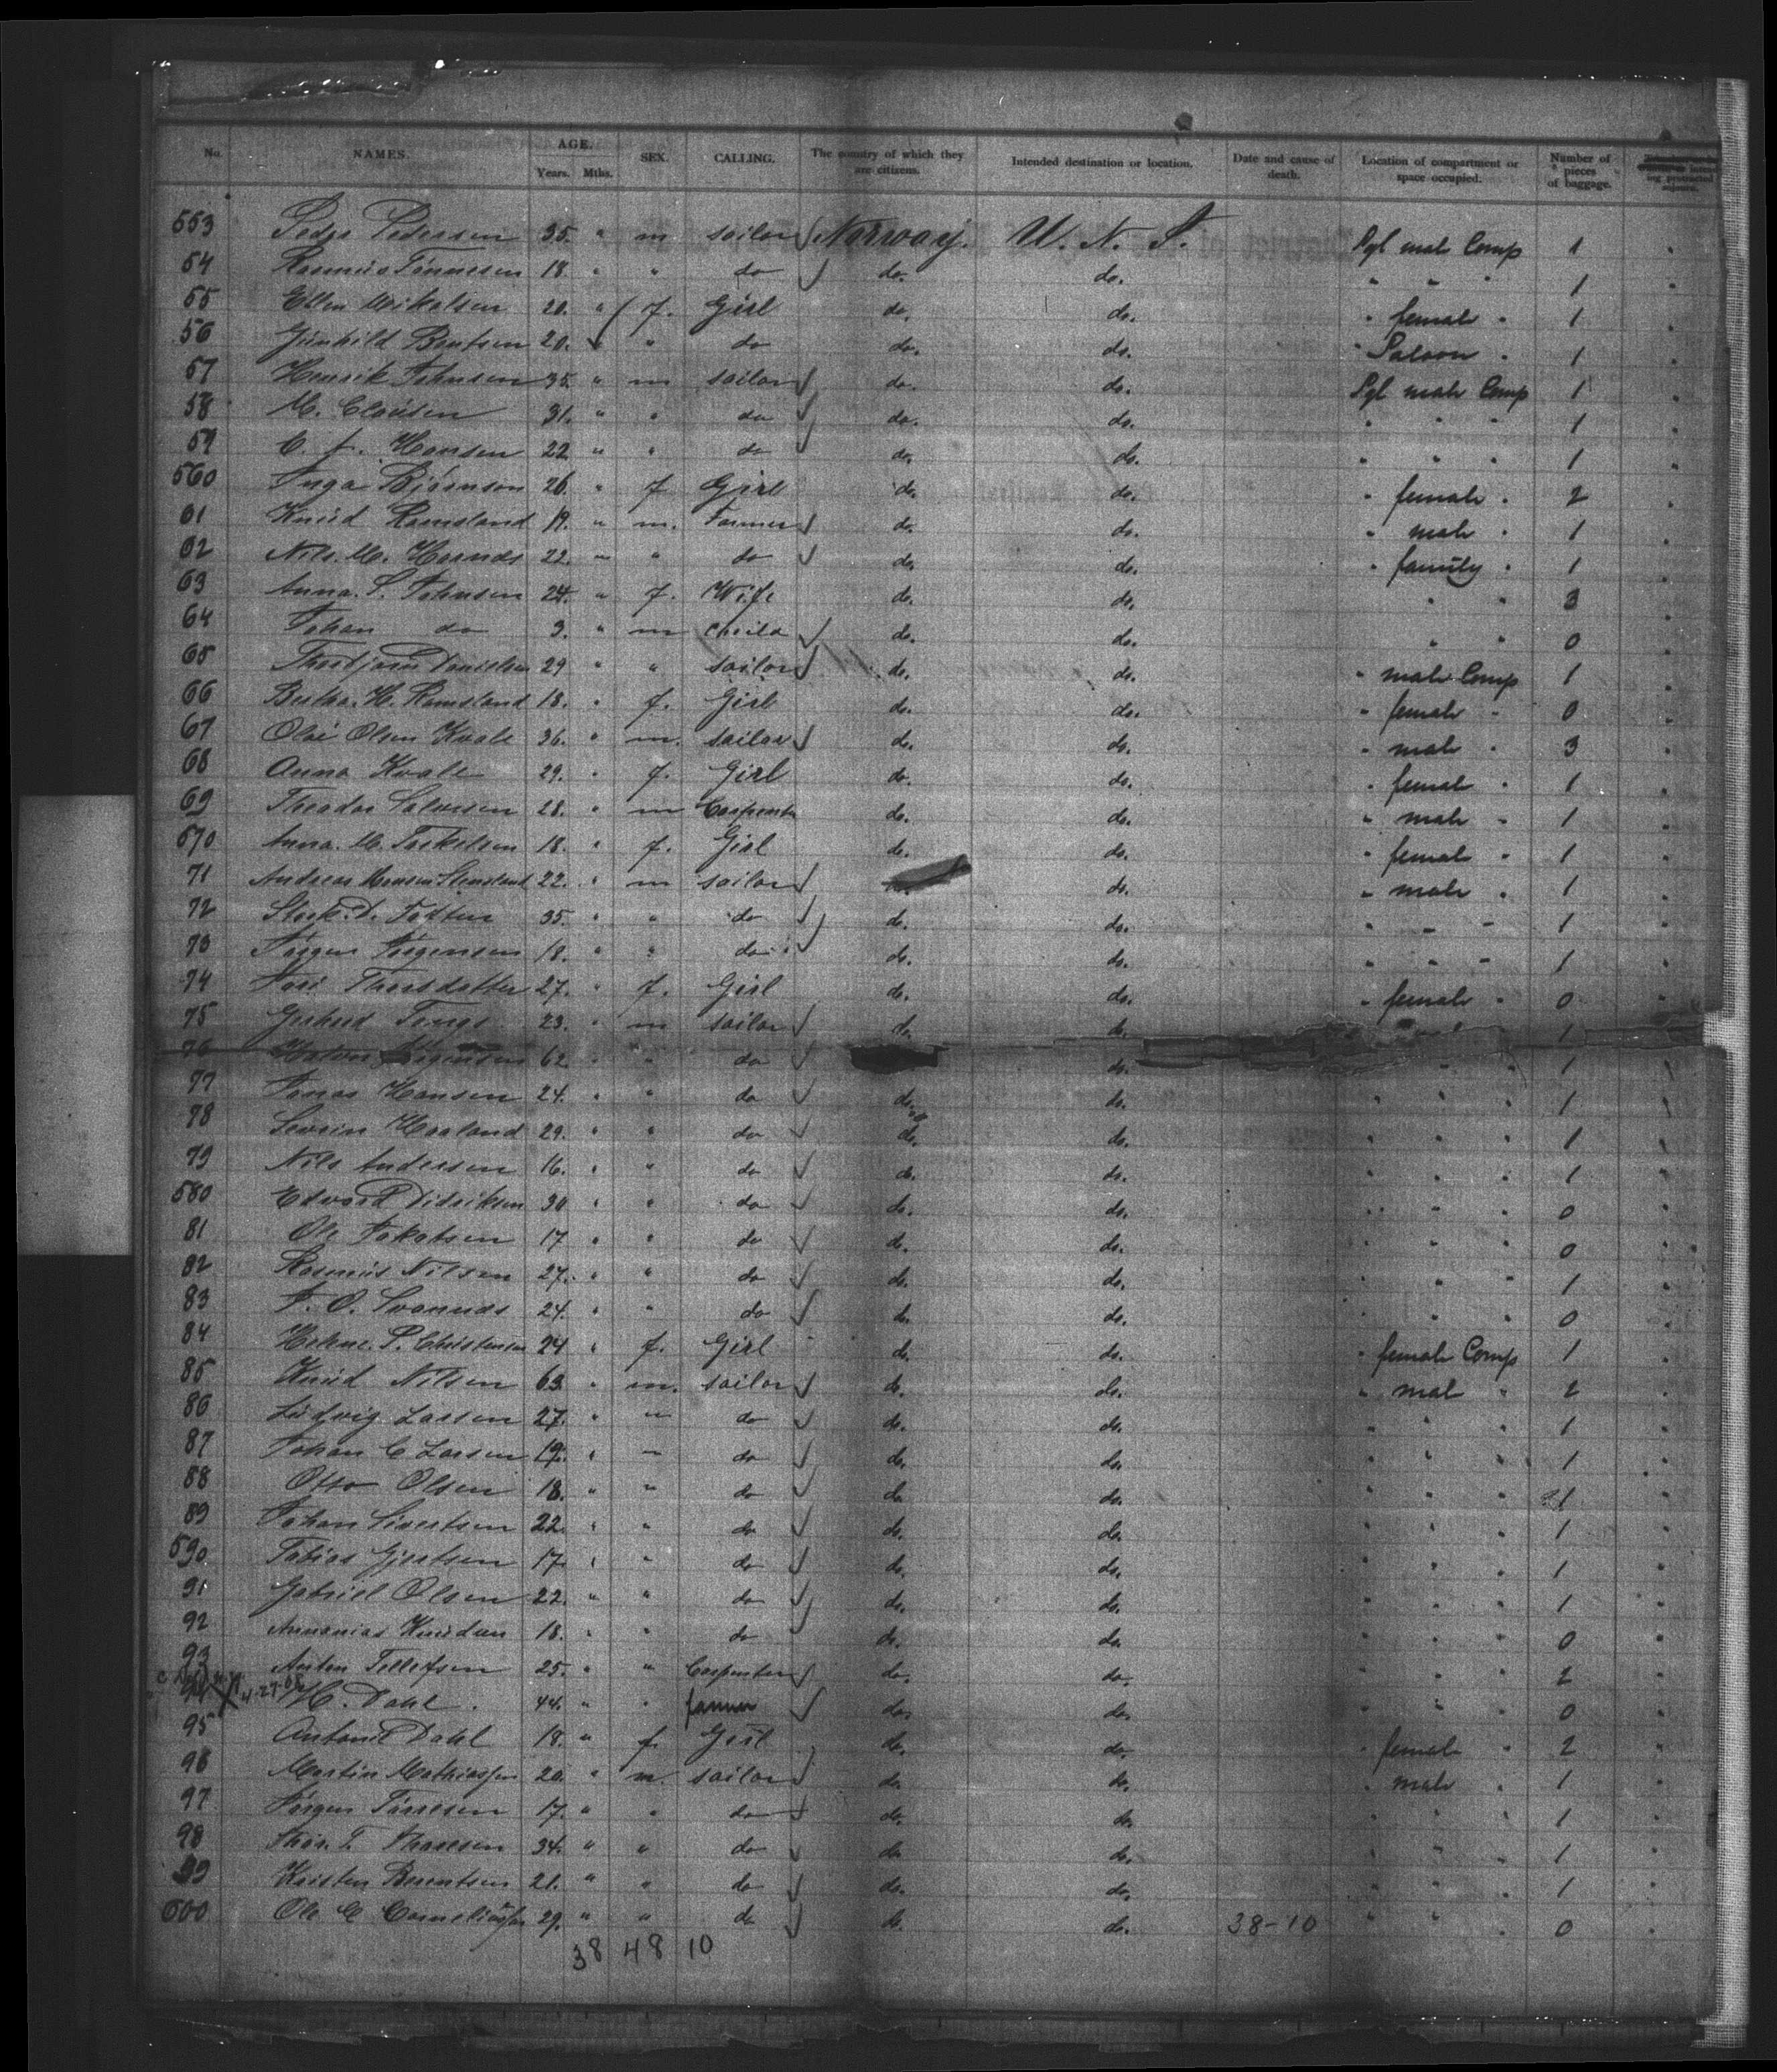 No. NAMES. AGE. Years. Mths. SEX. CALLING. The country of which they are citizens. Intended destination or location. Date and cause of death. Location of compartment or space occupied. Number of pieces of baggage.
553 Peder Pedersen 35. " m sailor Norway. U. N. S. Sgl male Comp 1
54 Rasmus Tönnesen 18. " " do do. do. " " " 1
55 Ellen Mikalsen 20. " f. Girl do. do. " female " 1
56 Gunhild Bentsen 20. " " do do. do. " Saloon " 1
57 Henrik Johnsen 35. " m sailor do. do. Sgl male Comp 1
58 M. Clausen 31. " " do do. do. " " " 1
59 Hansen 22. " " do do. do. " " " 1
560 Inga Björnson 26. " f Girl do. do. " female " 2
61 Knud Ramsland 19. " m. Farmer do. do. " male " 1
62 Nils. M. 22. " " do do. do. " family " 1
63 Anna. S. Johnsen 24. " f. Wife do. do. " " 3
64 Johan do 3. " m child do. do. " " 0
65 Thorbjörn Danielsen 29 " " sailor do. do. " male Comp 1
66 Berta. H. Ramsland 18. " f. Girl do. do. " female " 0
67 Olai Olsen Kvale 36. " m. sailor do. do. " male " 3
68 Anna Kvale 29. " f. Girl do. do. " female " 1
69 Theodor Salvesen 28. " m Carpenter do. do. " male " 1
570 Anna. M. Torkelsen 18. " f. Girl do. do. " female " 1
71 Andreas Hansen 22. " m sailor do. " male " 1
72 35. " " do do. do. " " " 1
73 Jörgen Jörgensen 18. " " do do. do. " " " 1
74 Thorsdatter 27. " f. Girl do. do. " female " 0
75 23. " m sailor do. do. 1
76 Jörgensen 62. " " do do. " " 1
77 Jonas Hansen 24. " " do do. do. " " " 1
78 Sevrin Haaland 29. " " do do. do. " " " 1
79 Nils Andersen 16. " " do do. do. " " " 1
580 Edvard Didriksen 30 " " do do. do. " " " 0
81 Ole Jakobsen 17 " " do do. do. " " " 0
82 Rasmus Nilsen 27. " " do do. do. " " " 1
83 24. " " do do. do. " " " 0
84 Helene. P. Christensen 24 " f. Girl do. do. " female Comp 1
85 Knud Nilsen 63. " m. sailor do. do. " male " 2
86 Ludvig Larsen 27. " " do do. do. " " 1
87 Johan C Larsen 19. " " do do. do. " " " 1
88 Otto Olsen 18. " " do do. do. " " " 1
89 Johan Sivertsen 22. " " do do. do. " " " 1
590 Tobias Gjertsen 17. " " do do. do. " " " 1
91 Gabriel Olsen 22. " " do do. do. " " " 1
92 Annanias Knudsen 18. " " do do. do. " " " 0
93 Anton Tellefsen 25. " " Carpenter do. do. " " " 2
94 X 4-27-06 H. Dahl. 44. " " farmer do. do. " " " 0
95 Dahl 18. " f. Girl do. do. " female " 2
96 Martin Mathiassen 20. " m. sailor do. do. " male " 1
97 Jörgen 17. " " do do. do. " " " 1
98 34. " " do do. do. " " " 1
99 Kristen Berentsen 21. " " do do. do. " " " 1
600 Ole C Corneliussen 29. " " do do. do. 38-10 " " " 0
38 48 10